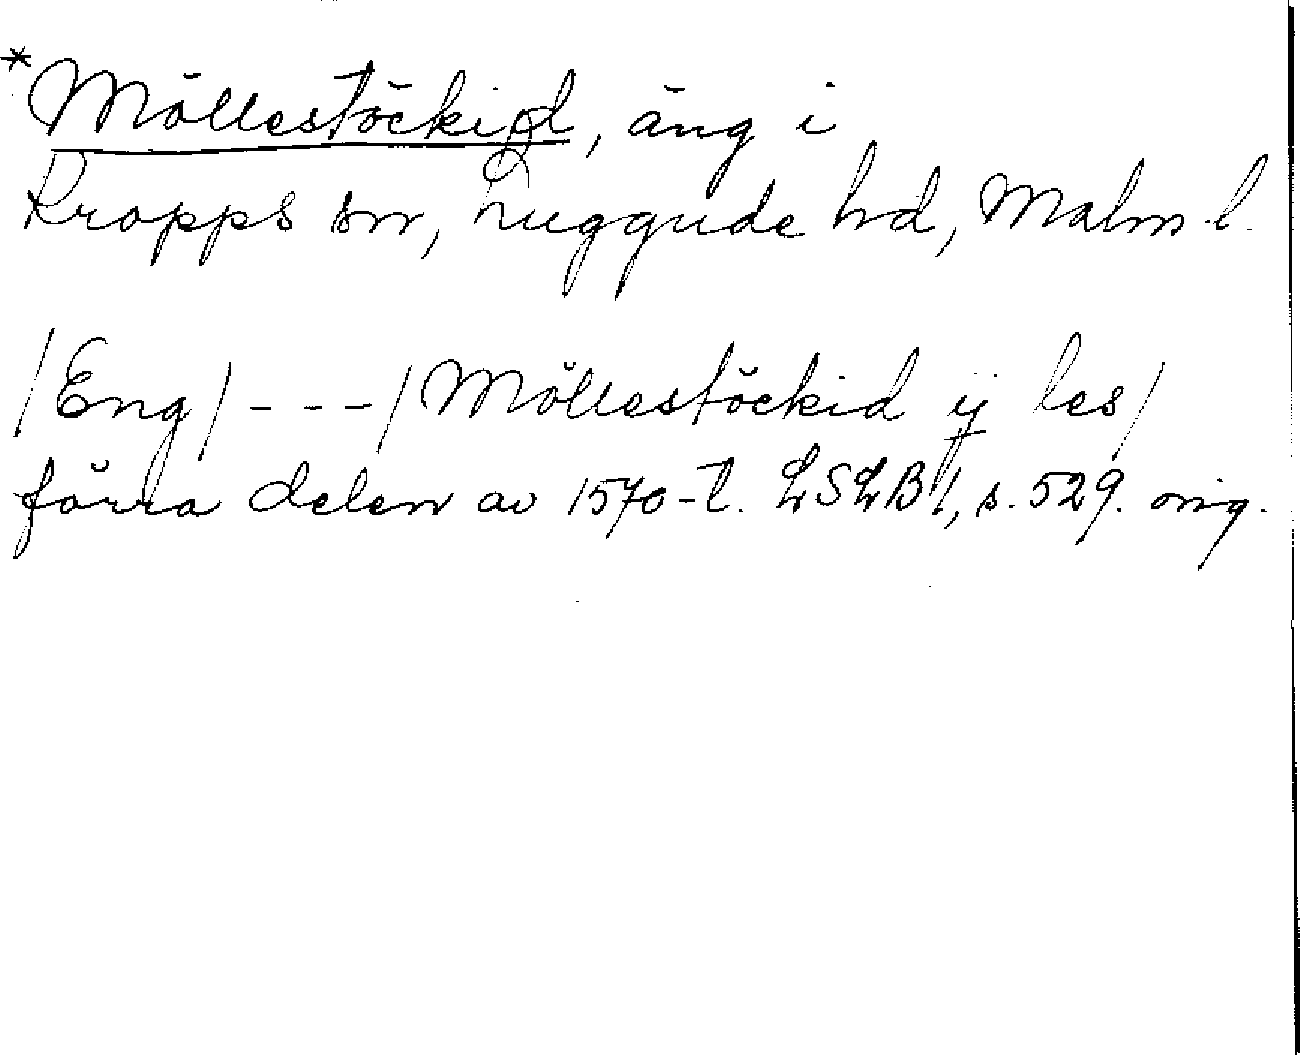 *Möllestöckid, äng i
Kropps sn, Luggude hd, Malm. l.
/Eng/ - - - / Möllestöckid ij les/
förra delen av 1570-t. LSLB 1, s. 529. orig.